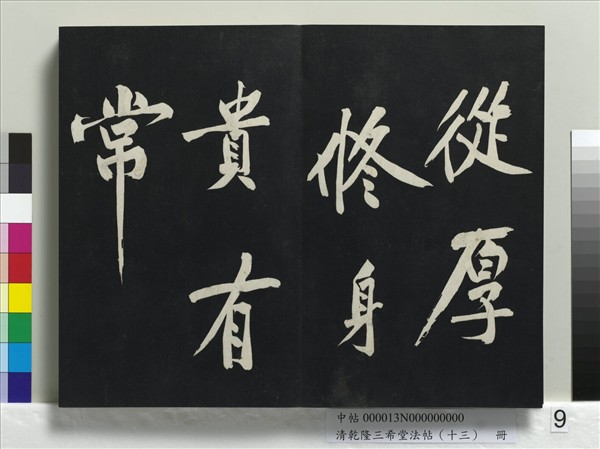 從厚
修身
貴有
常
中帖 000013N000000000
清乾隆三希堂法帖（十三） 冊
9